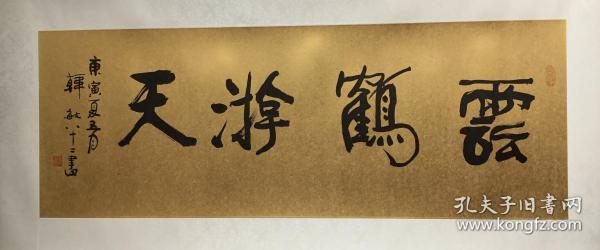 雲鶴游天
庚寅夏五月
韓敏八十二書
孔夫子旧书网
www.kongfz.com